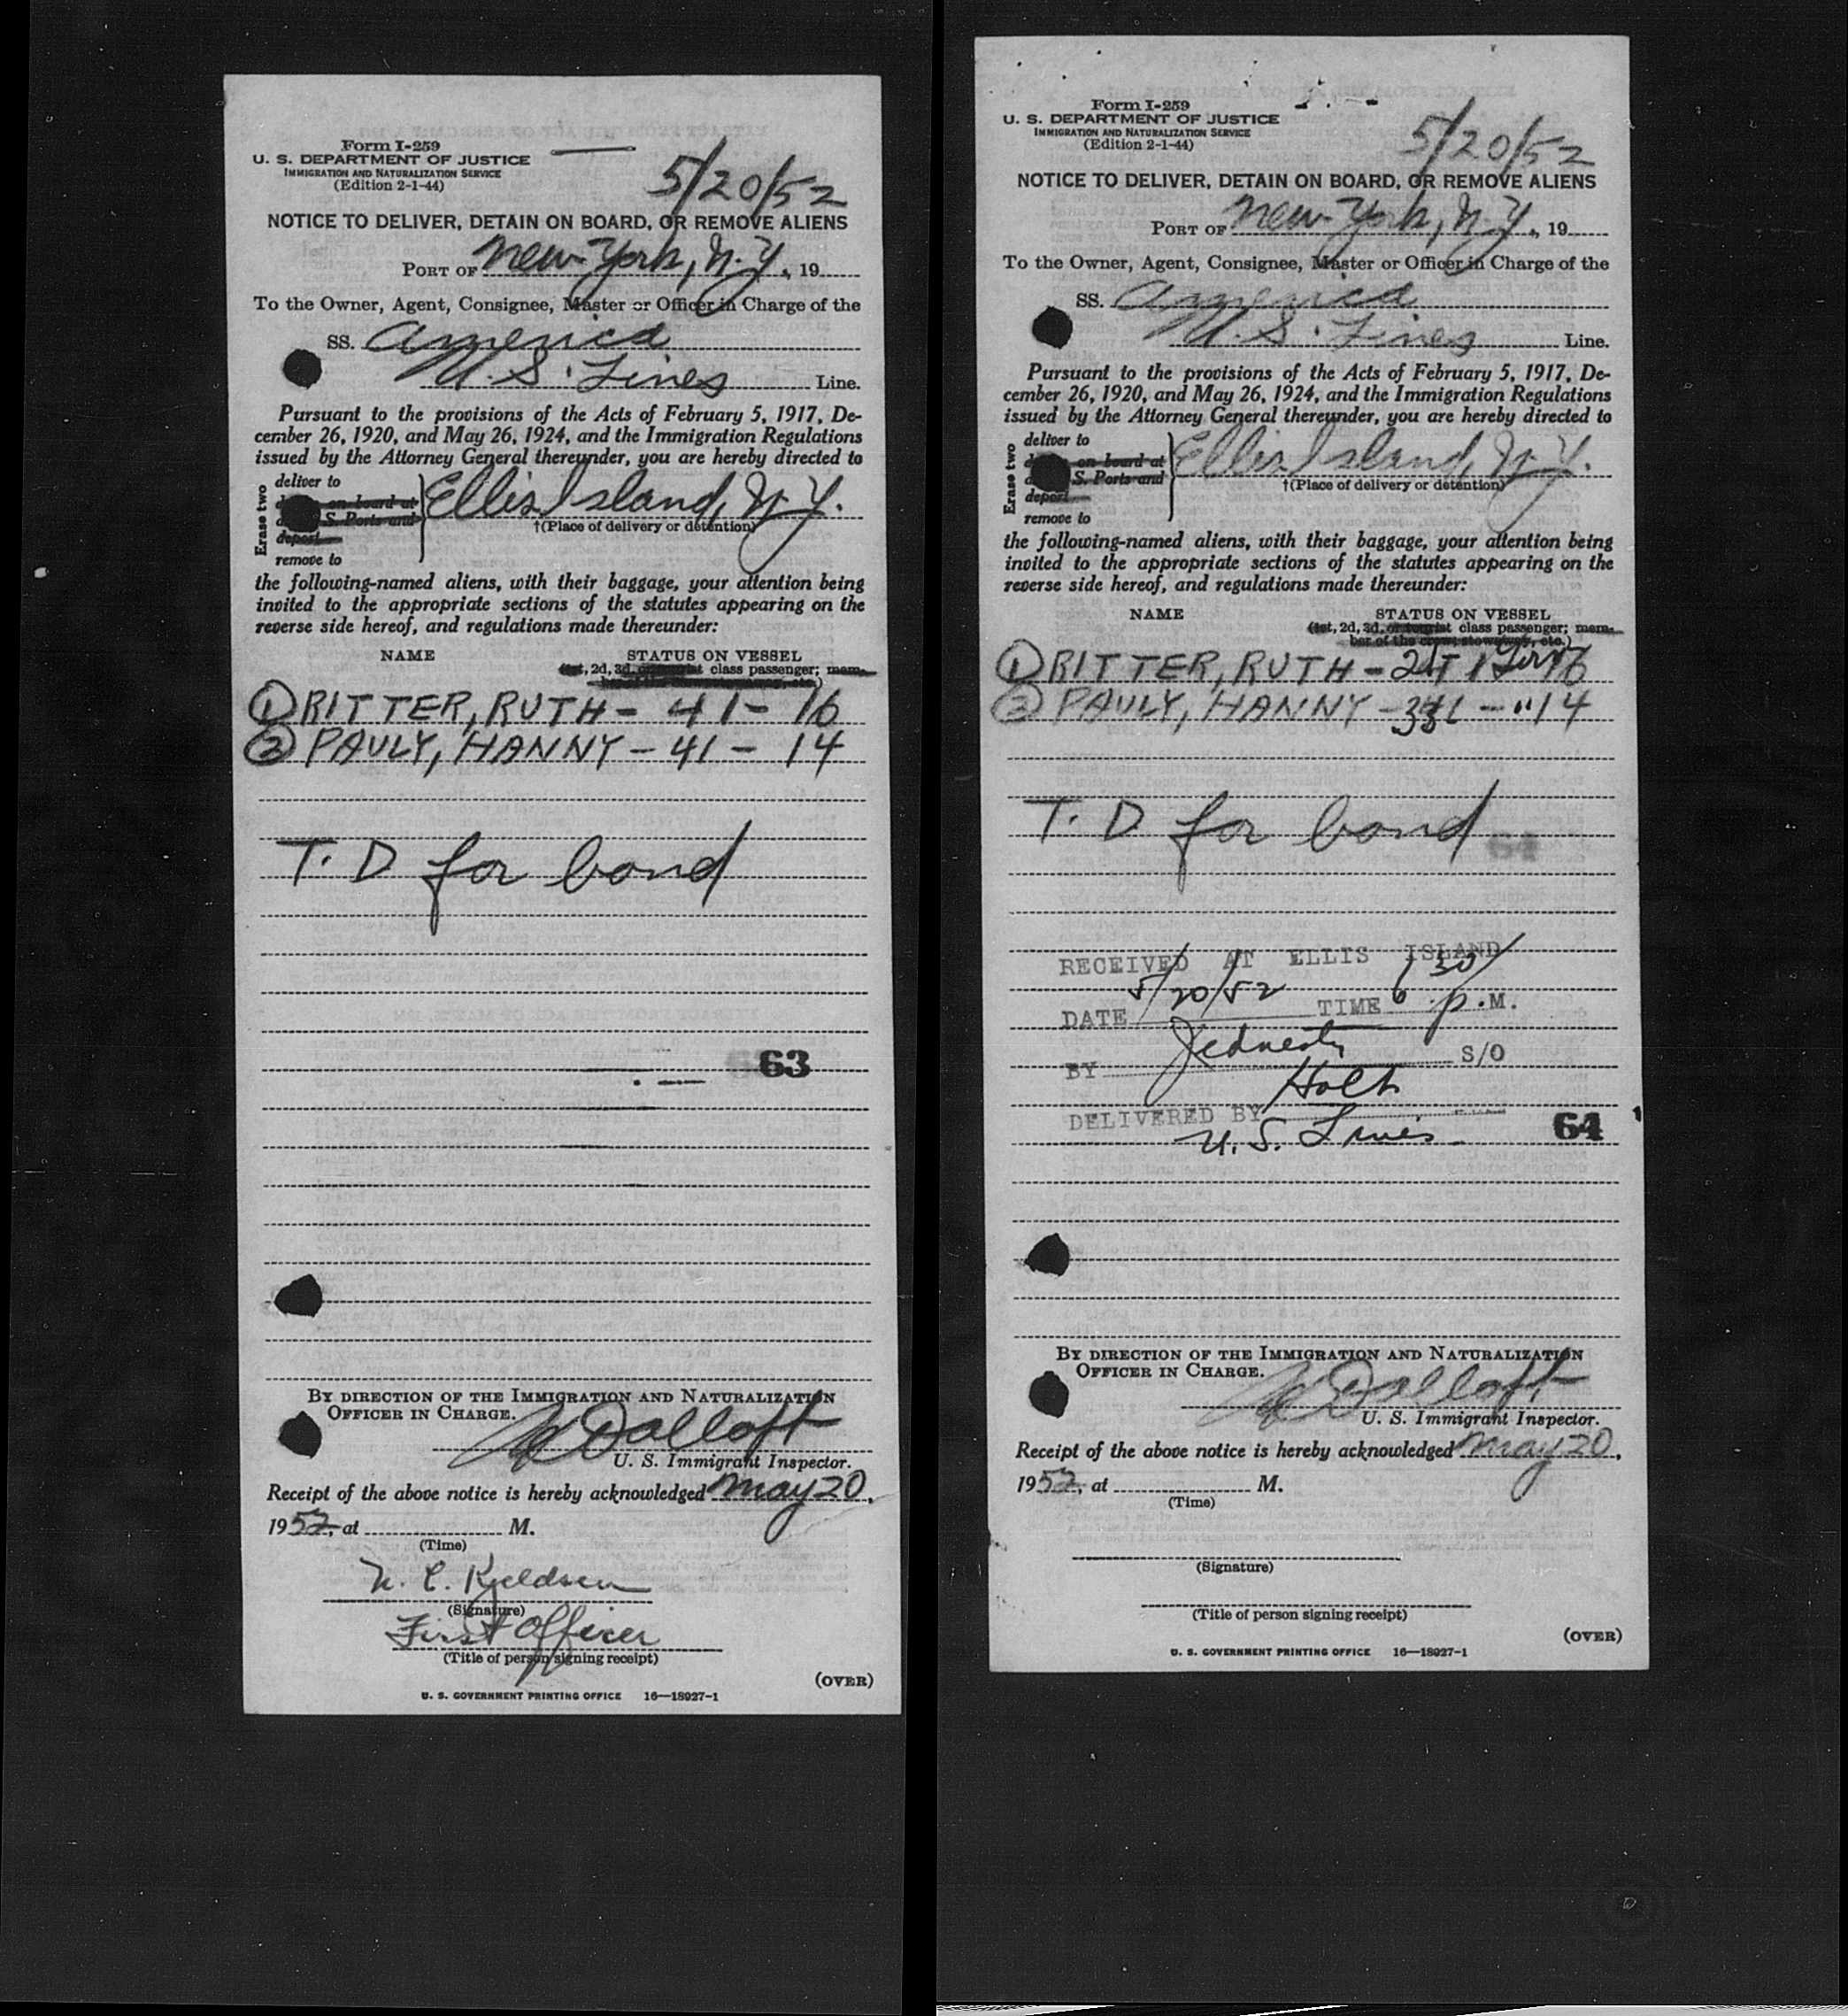 Form I-259
U. S. DEPARTMENT OF JUSTICE
IMMIGRATION AND NATURALIZATION SERVICE
(Edition 2-1-44)
5/20/52
NOTICE TO DELIVER, DETAIN ON BOARD, OR REMOVE ALIENS
PORT OF New York, N.Y., 19
To the Owner, Agent, Consignee, Master or Officer in Charge of the
SS. America
U.S. Lines Line.
Pursuant to the provisions of the Acts of February 5, 1917, De-
cember 26, 1920, and May 26, 1924, and the Immigration Regulations
issued by the Attorney General thereunder, you are hereby directed to
Erase two
deliver to
on board at
S. Ports and
deport
remove to
Ellis Island, N.Y.
†(Place of delivery or detention)
the following-named aliens, with their baggage, your attention being
invited to the appropriate sections of the statutes appearing on the
reverse side hereof, and regulations made thereunder:
NAME STATUS ON VESSEL
(1st, 2d, 3d, or tourist class passenger; mem-
① RITTER, RUTH - 41 - 16
② PAULY, HANNY - 41 - 14
T. D for bond
63
BY DIRECTION OF THE IMMIGRATION AND NATURALIZATION
OFFICER IN CHARGE.
U. S. Immigrant Inspector.
Receipt of the above notice is hereby acknowledged May 20,
1952, at M.
(Time)
N. C. Kjeldsen
(Signature)
First Officer
(Title of person signing receipt)
(OVER)
U. S. GOVERNMENT PRINTING OFFICE 16—18927-1
Form I-259
U. S. DEPARTMENT OF JUSTICE
IMMIGRATION AND NATURALIZATION SERVICE
(Edition 2-1-44)
5/20/52
NOTICE TO DELIVER, DETAIN ON BOARD, OR REMOVE ALIENS
PORT OF New York, N.Y., 19
To the Owner, Agent, Consignee, Master or Officer in Charge of the
SS. America
U.S. Lines Line.
Pursuant to the provisions of the Acts of February 5, 1917, De-
cember 26, 1920, and May 26, 1924, and the Immigration Regulations
issued by the Attorney General thereunder, you are hereby directed to
Erase two
deliver to
on board at
S. Ports and
deport
remove to
Ellis Island, N.Y.
†(Place of delivery or detention)
the following-named aliens, with their baggage, your attention being
invited to the appropriate sections of the statutes appearing on the
reverse side hereof, and regulations made thereunder:
NAME STATUS ON VESSEL
(1st, 2d, 3d, or tourist class passenger; mem-
ber of the crew, stowaway, etc.)
① RITTER, RUTH -
② PAULY, HANNY - 14
T. D for bond
RECEIVED AT ELLIS ISLAND
DATE 5/20/52 TIME 6 30 p.M.
BY S/O
Holt
DELIVERED BY
U.S. Lines
64
BY DIRECTION OF THE IMMIGRATION AND NATURALIZATION
OFFICER IN CHARGE.
U. S. Immigrant Inspector.
Receipt of the above notice is hereby acknowledged May 20,
1952, at M.
(Time)
(Signature)
(Title of person signing receipt)
(OVER)
U. S. GOVERNMENT PRINTING OFFICE 16—18927-1